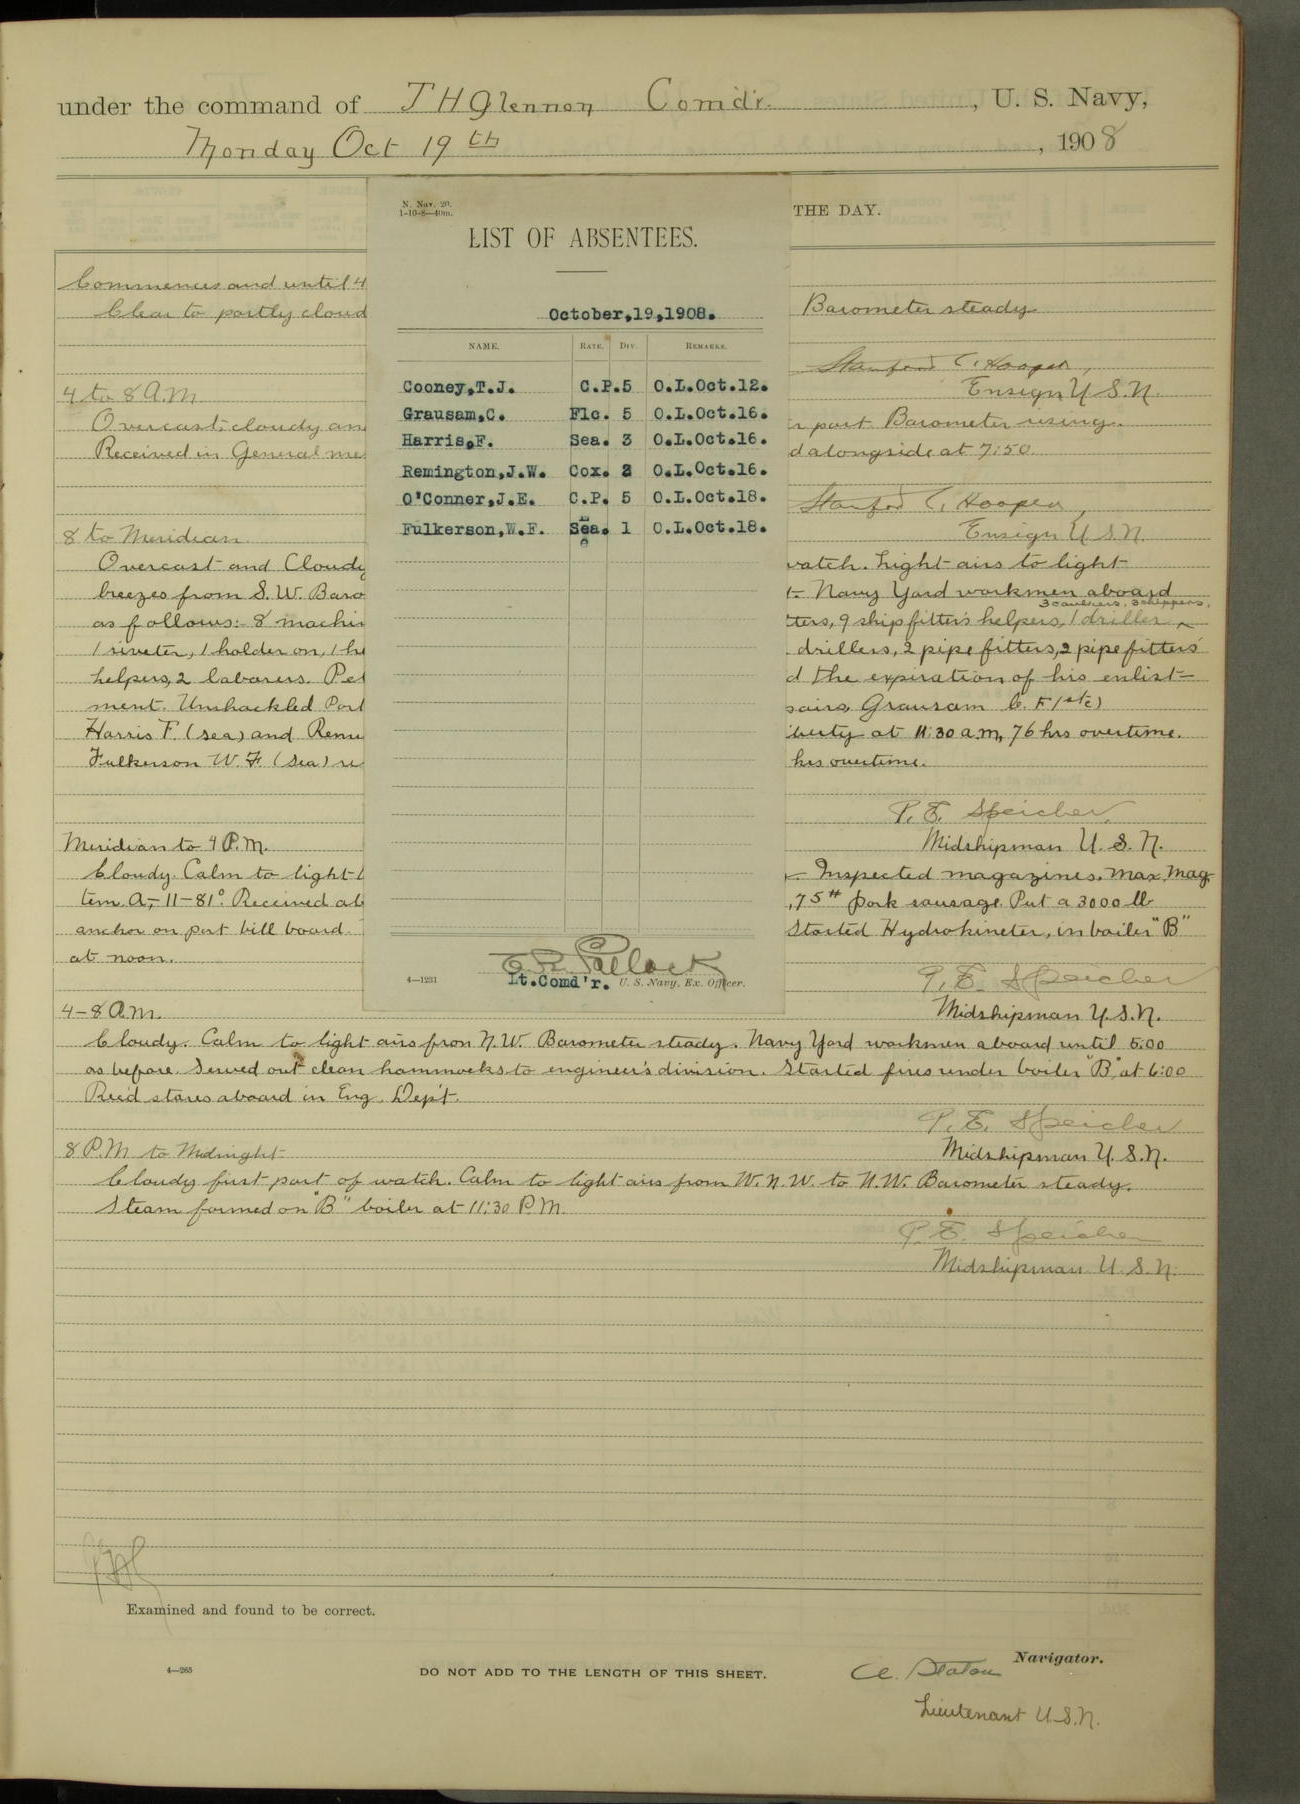 under the command of T H Glennon Comdr. , U. S. Navy,
Monday Oct 19th , 1908
THE DAY.
N. Nav. 20.
1-10-8—40m.
LIST OF ABSENTEES.
October,19,1908.
NAME. RATE. DIV. REMARKS.
Cooney,T.J. C.P.5 O.L.Oct.12.
Grausam,C. F1c. 5 O.L.Oct.16.
Harris,F. Sea. 3 O.L.Oct.16.
Remington,J.W. Cox. 2 O.L.Oct.16.
O'Conner,J.E. C.P. 5 O.L.Oct.18.
Fulkerson,W.F. Sea. 1 O.L.Oct.18.
Lt.Comd'r. U. S. Navy, Ex. Officer.
4—1231
Commences and until 4
Clear to partly cloud Barometer steady
Stanford C. Hooper,
Ensign U.S.N.
4 to 8 A.M
Overcast cloudy an r part Barometer rising.
Received in General me d alongside at 7:50
Stanford C. Hooper,
Ensign U.S.N.
8 to Meridian
Overcast and Cloudy watch. Light airs to light
breezes from S.W. Baro Navy Yard workmen aboard
as follows:- 8 machin ters, 9 ship fitters helpers, 1 driller 3 caulkers, 3 chippers,
1 riveter, 1 holder on, 1 drillers, 2 pipe fitters, 2 pipe fitters
helpers, 2 laborers. Pet d the expiration of his enlist-
ment. Unshackled Port Grausam C. F1stc)
Harris F. (sea) and Remi iberty at 11:30 a.m, 76 hrs overtime.
Fulkerson W.F. (Sea) hrs overtime.
P. E. Speicher.
Midshipman U. S. N.
Meridian to 4 P.M.
Cloudy. Calm to light Inspected magazines. Max. Mag.
tem. A-11-81° Received ab ,75# pork sausage. Put a 3000 lb
anchor on port bill board. Started Hydrokineter, in boiler "B"
at noon.
P. E. Speicher
Midshipman U.S.N.
4-8 P.M.
Cloudy. Calm to light airs from N.W. Barometer steady. Navy Yard workmen aboard until 5:00
as before. Served out clean hammocks to engineer's division. Started fires under boiler "B" at 6:00
Rec'd stores aboard in Eng. Dep't.
P. E. Speicher
Midshipman U.S.N.
8 P.M to Midnight
Cloudy first part of watch. Calm to light airs from W.N.W. to N.W. Barometer steady.
Steam formed on "B" boiler at 11:30 P.M.
P. E. Speicher
Midshipman U.S.N.
Examined and found to be correct.
4—265
DO NOT ADD TO THE LENGTH OF THIS SHEET.
A. Staton Navigator.
Lieutenant U.S.N.